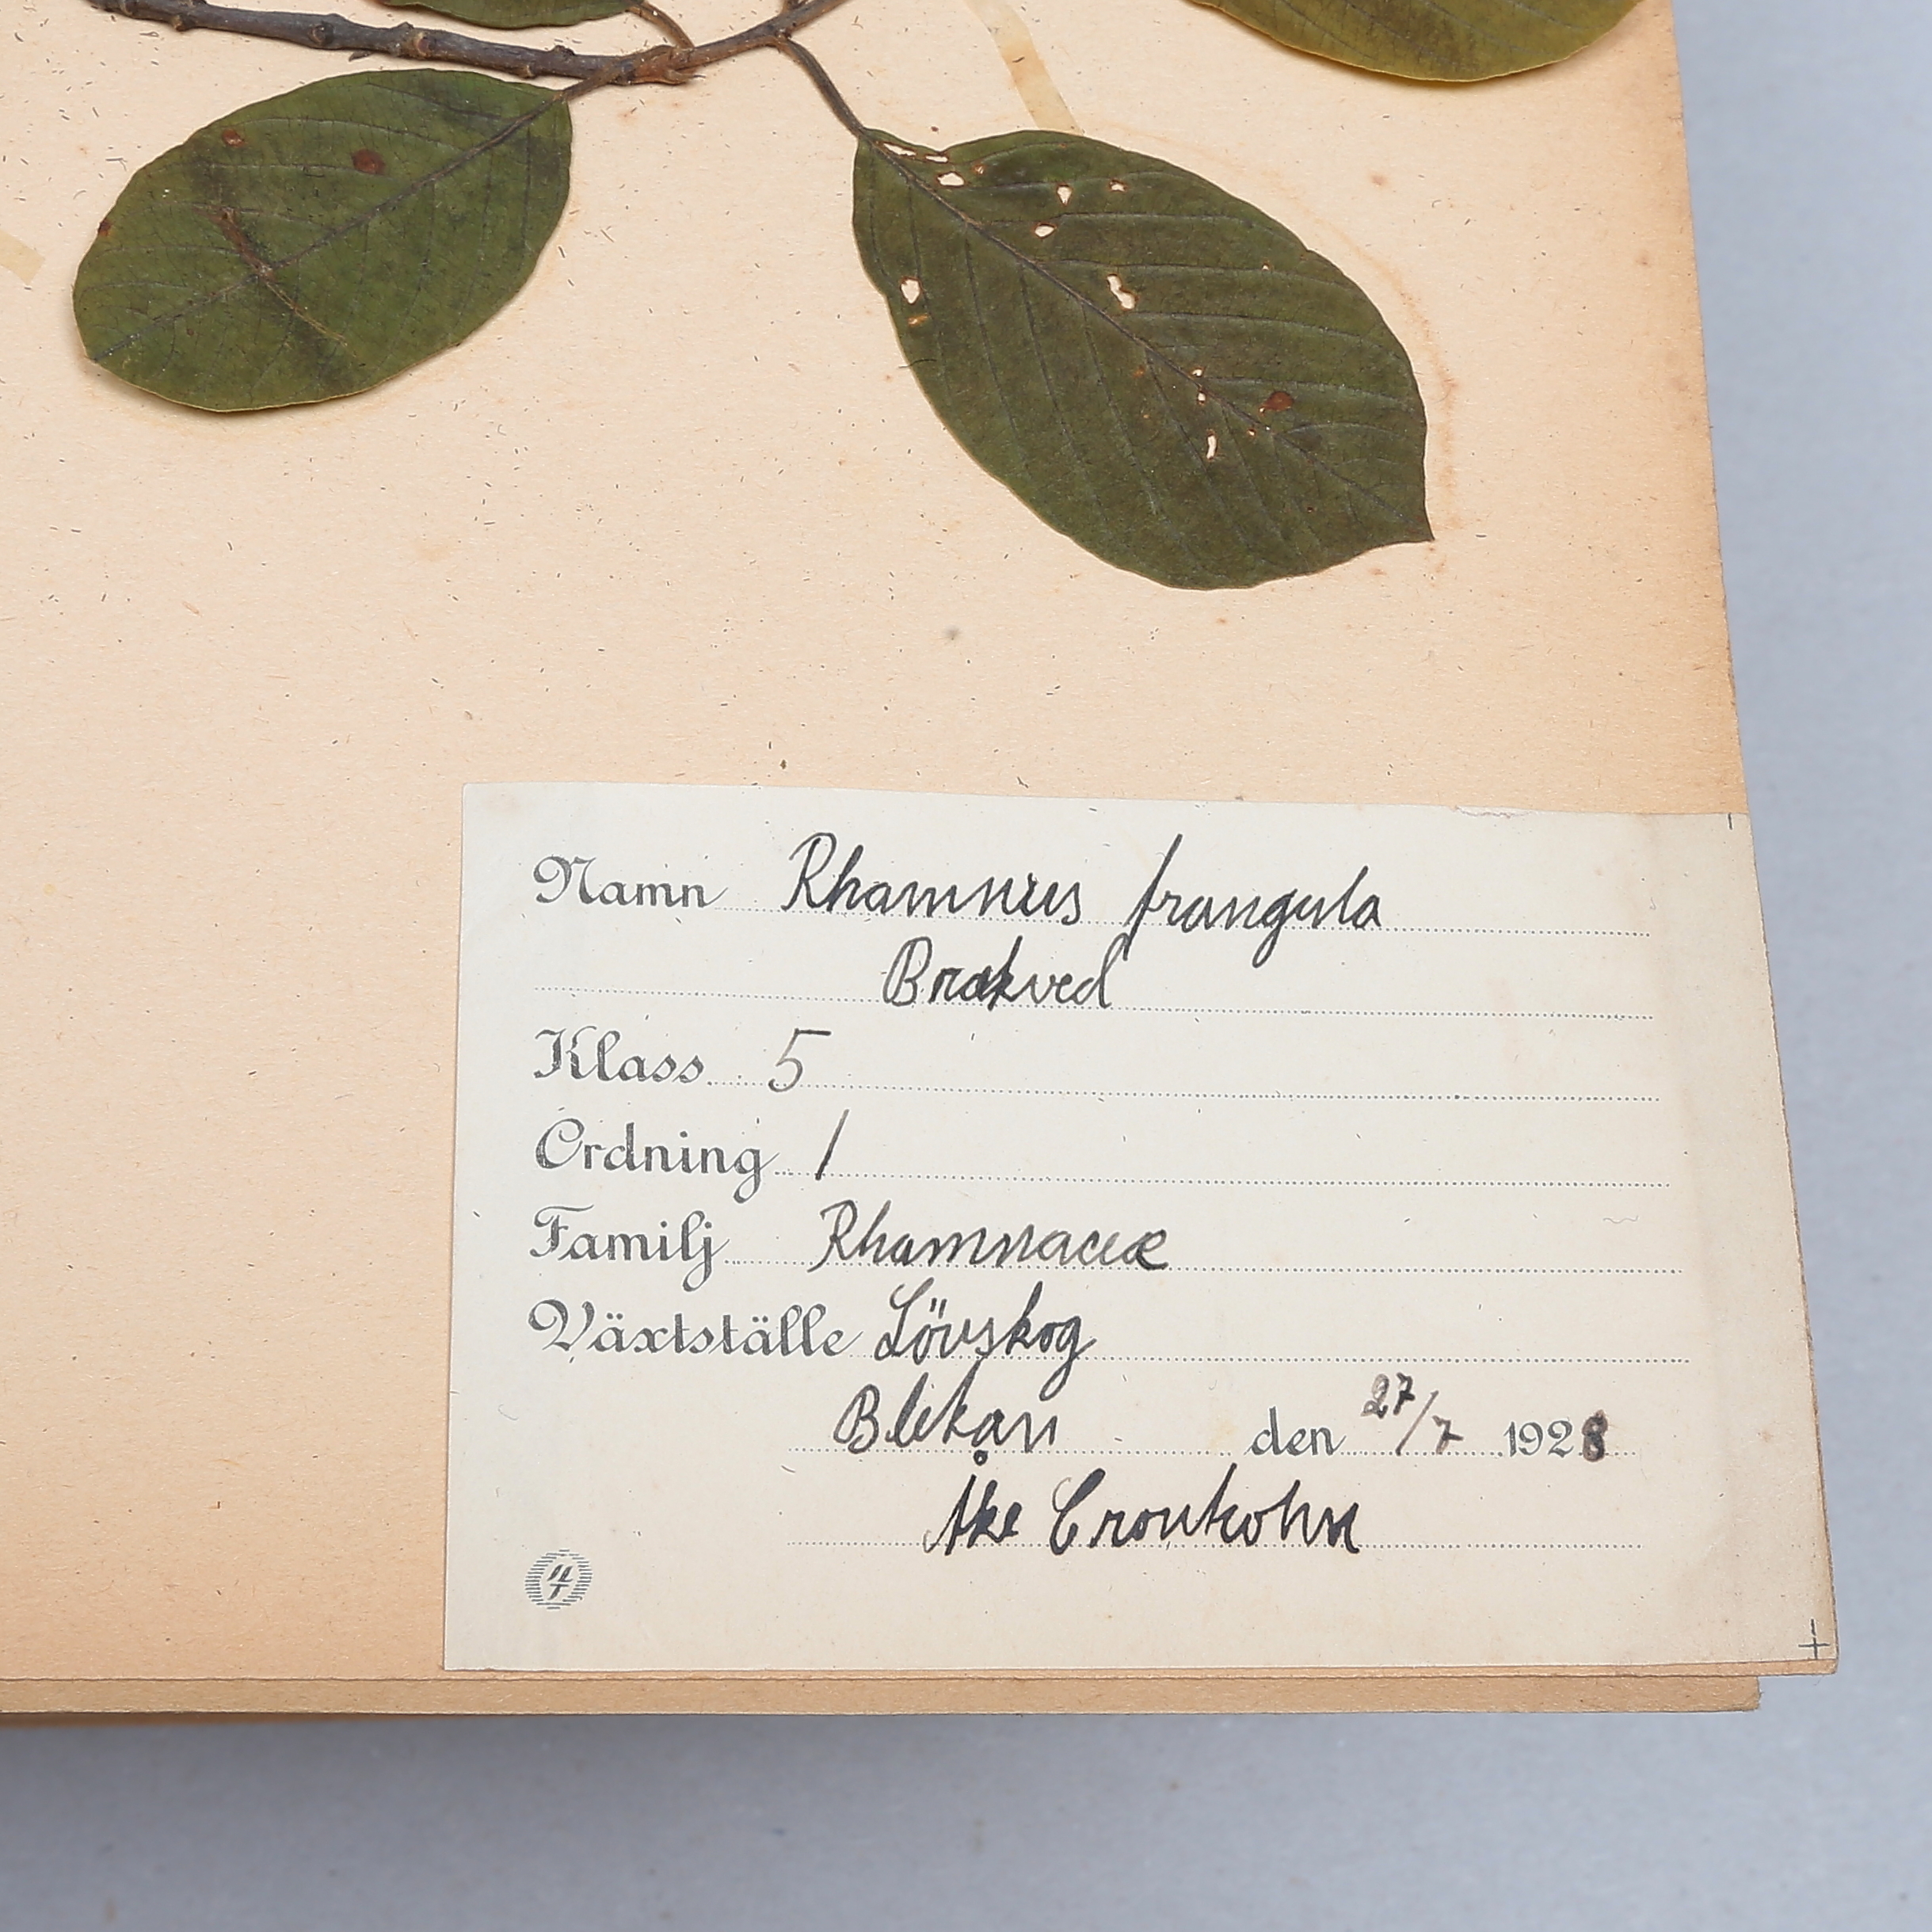 Namn Rhamnus frangula
Brakved
Klass 5
Ordning 1
Familj Rhamnaceæ
Växtställe Lövskog
Blekan den 27/7 1928
Åke Cronkohn